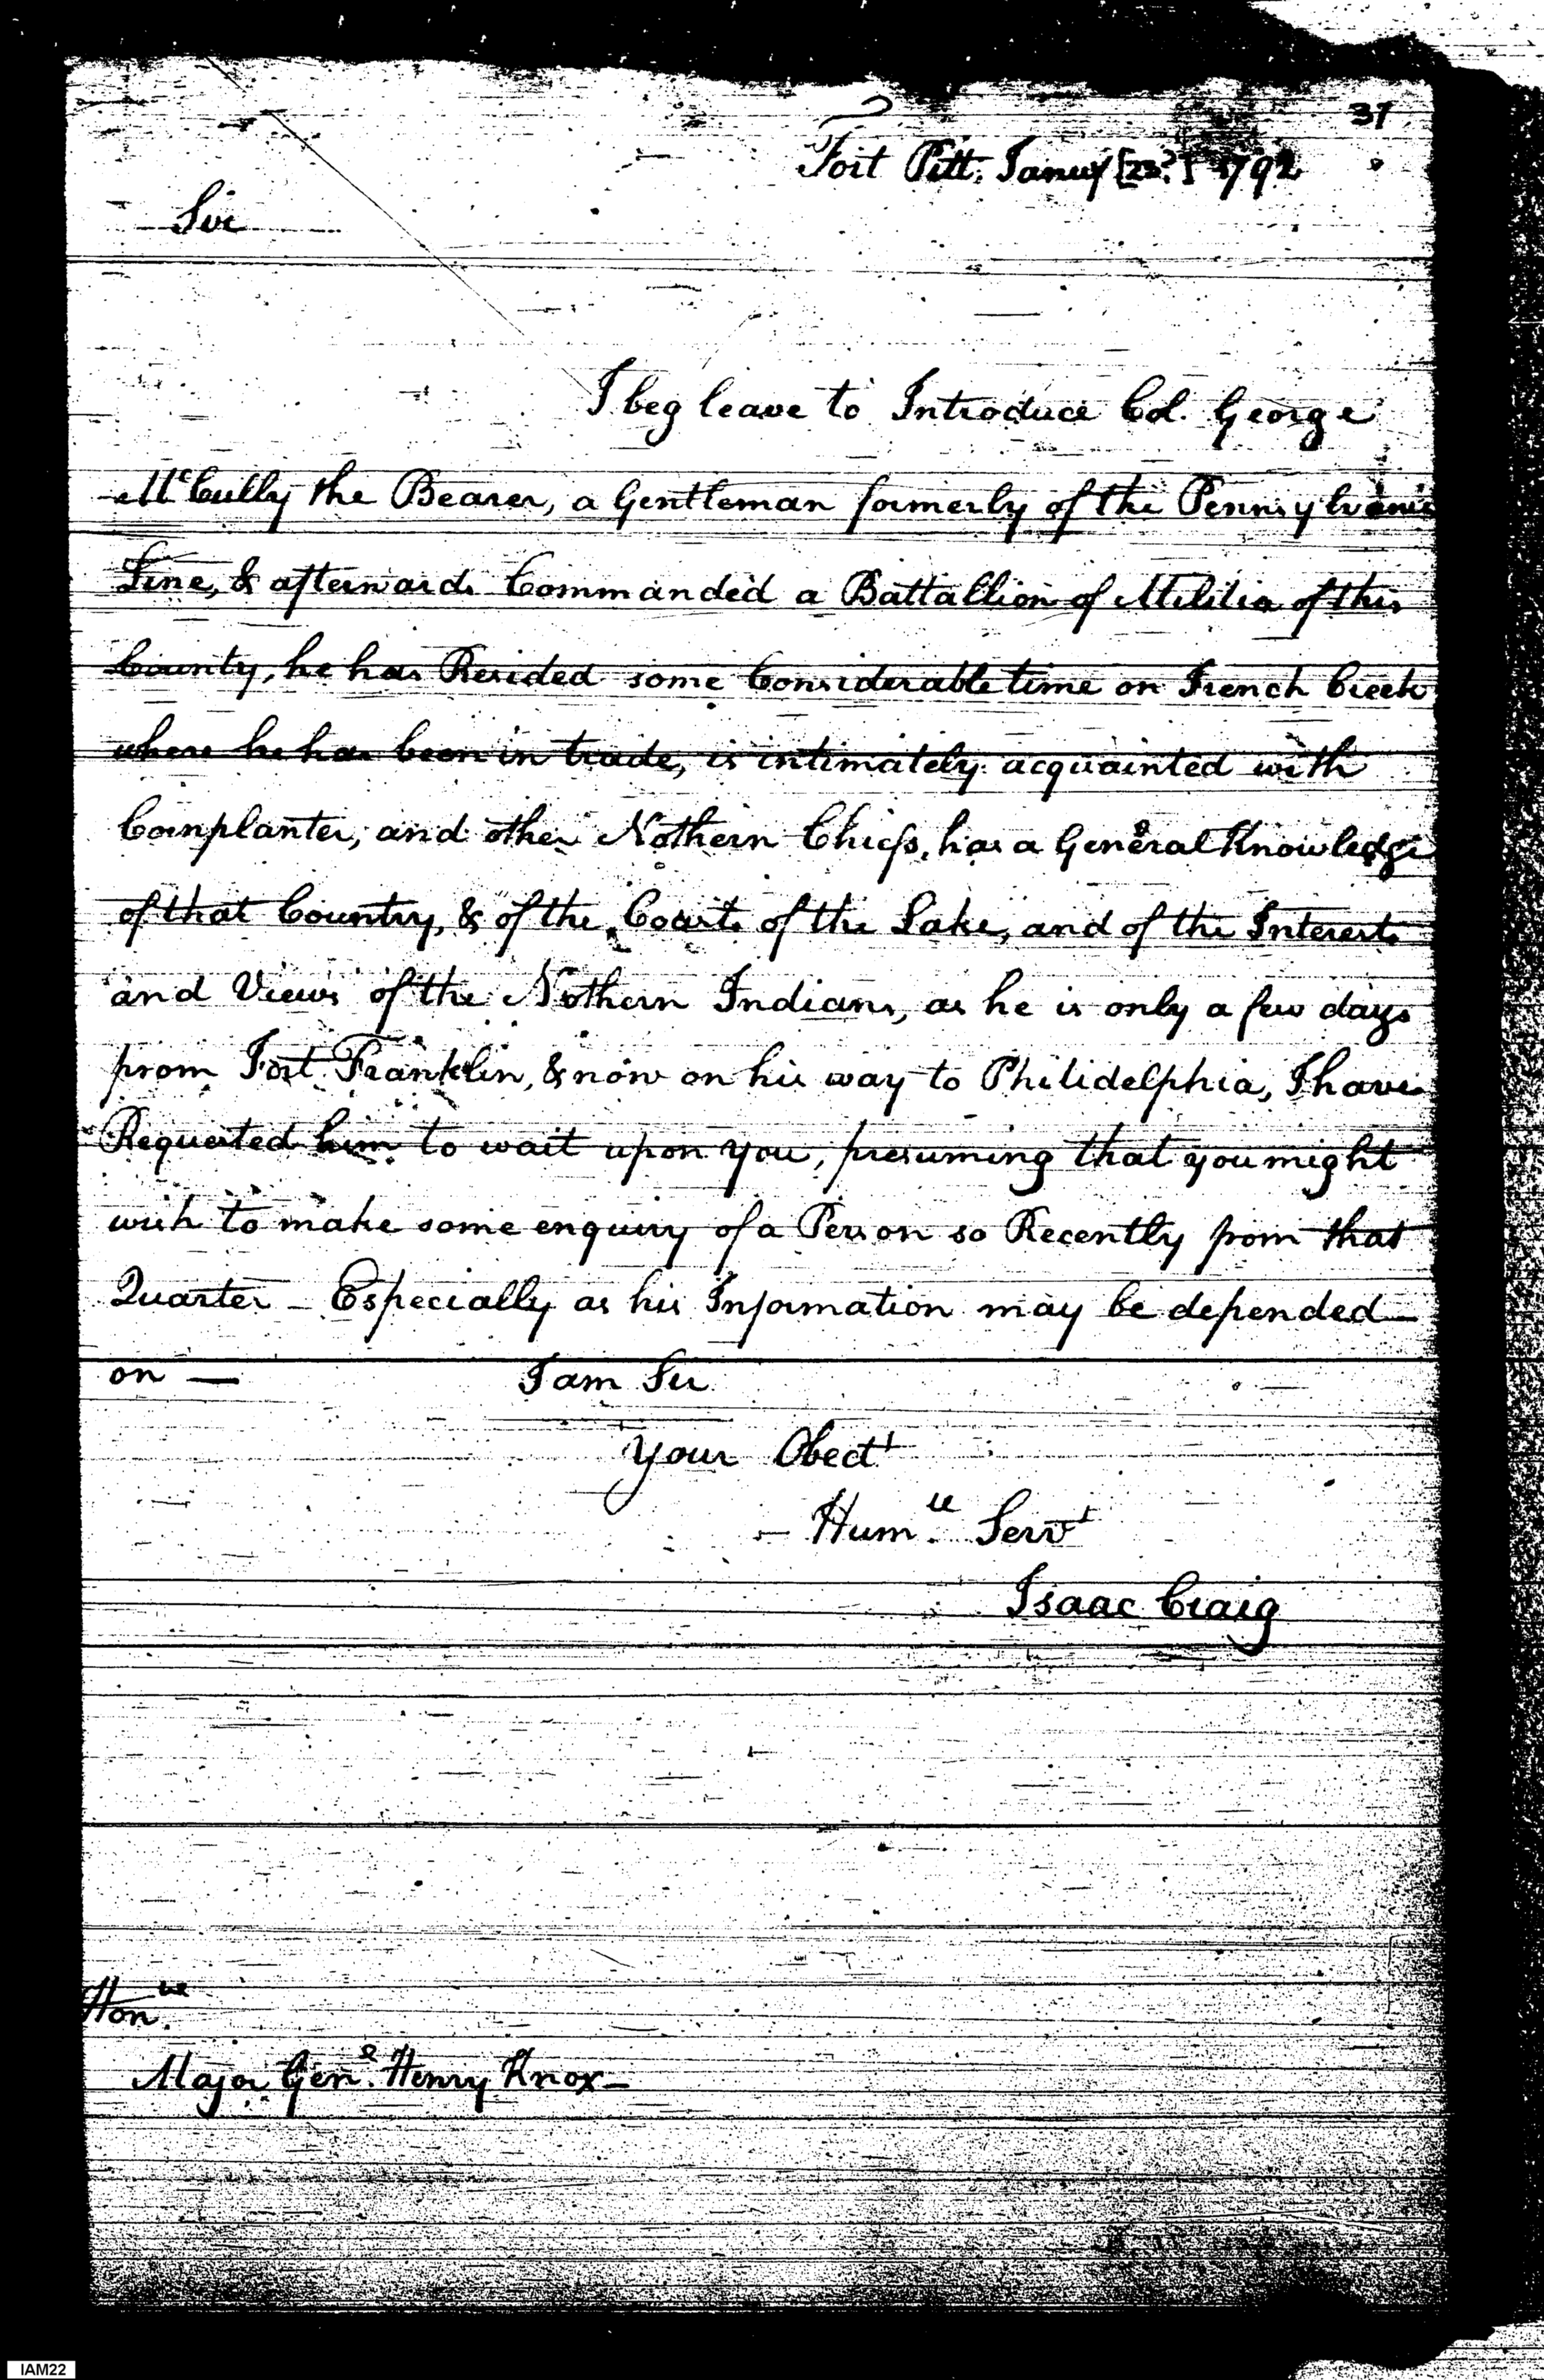 31
Fort Pitt. Janury [23?] 1792
Sir
I beg leave to Introduce Col. George
McCully the Bearer, a Gentleman formerly of the Pennsylvania
Line, & afterwards Commanded a Battallion of Militia of this
County, he has Resided some Considerable time on French Creek
where he has been in trade, is intimately acquainted with
Cornplanter, and other Nothern Chiefs, has a General Knowledge
of that Country, & of the Coasts of the Lake, and of the Interests
and Views of the Nothern Indians, as he is only a few days
from Fort Franklin, & now on his way to Philidelphia, I have
Requested him to wait upon you, presuming that you might
wish to make some enquiry of a Person so Recently from that
Quarter – Especially as his Information may be depended
on —
I am Sir
Your Obedt
– Humle Servt
Isaac Craig
Honble
Major Genl Henry Knox –
IAM22